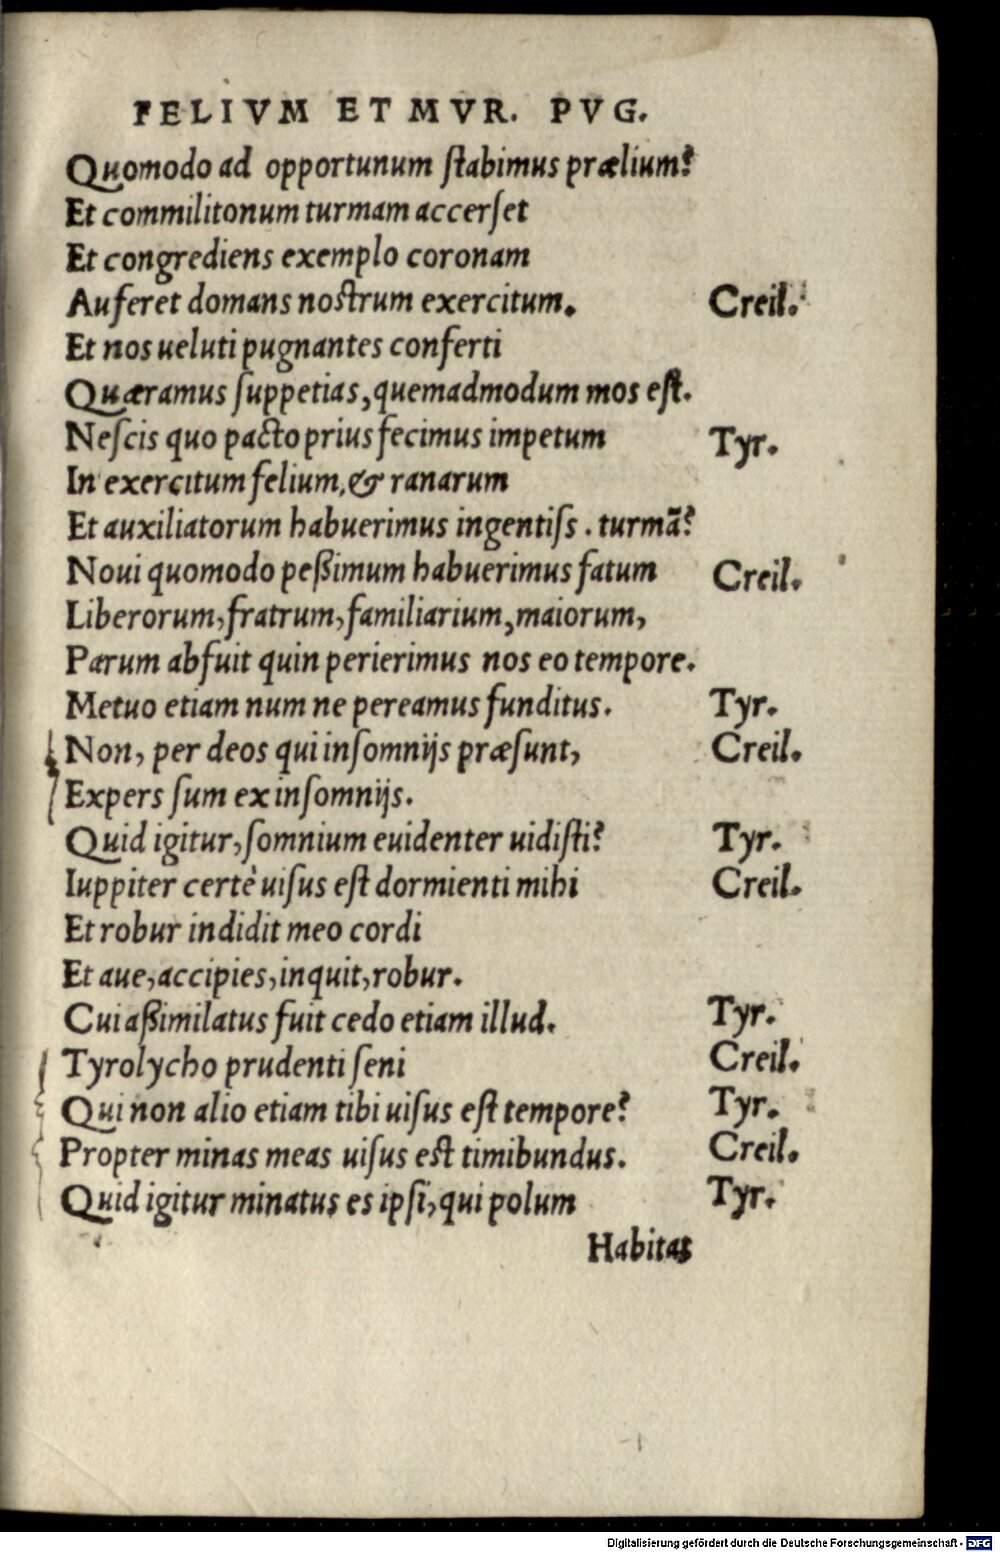 FELIVM ET MVR. PVG.
Quomodo ad opportunum ſtabimus prælium?
Et commilitonum turmam accerſet
Et congrediens exemplo coronam
Auferet domans noſtrum exercitum. Creil.
Et nos ueluti pugnantes conferti
Quæramus ſuppetias, quemadmodum mos eſt.
Neſcis quo pacto prius fecimus impetum Tyr.
In exercitum felium, & ranarum
Et auxiliatorum habuerimus ingentiſs. turmā?
Noui quomodo peßimum habuerimus fatum Creil.
Liberorum, fratrum, familiarium, maiorum,
Parum abfuit quin perierimus nos eo tempore.
Metuo etiam num ne pereamus funditus. Tyr.
Non, per deos qui inſomnijs præſunt, Creil.
Expers ſum ex inſomnijs.
Quid igitur, ſomnium euidenter uidiſti? Tyr.
Iuppiter certè uiſus eſt dormienti mihi Creil.
Et robur indidit meo cordi
Et aue, accipies, inquit, robur.
Cui aßimilatus fuit cedo etiam illud. Tyr.
Tyrolycho prudenti ſeni Creil.
Qui non alio etiam tibi uiſus eſt tempore? Tyr.
Propter minas meas uiſus eſt timibundus. Creil.
Quid igitur minatus es ipſi, qui polum Tyr.
Habitat
Digitalisierung gefördert durch die Deutsche Forschungsgemeinschaft - DFG